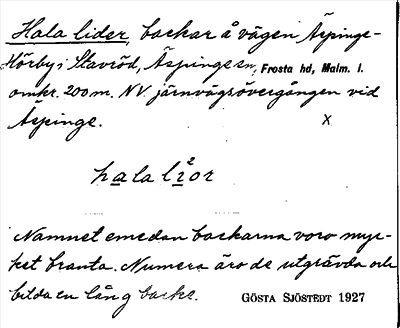 Hala lider, backar å vägen Äspinge-
Hörby i Stavröd, Äspinge sn, Frosta hd, Malm. l.
omkr. 200 m. NV järnvägsövergången vid
Äspinge. X
hala li²or
Namnet emedan backarna voro myc-
ket branta. Numera äro de utgrävda och
bilda en lång backe. GÖSTA SJÖSTEDT 1927